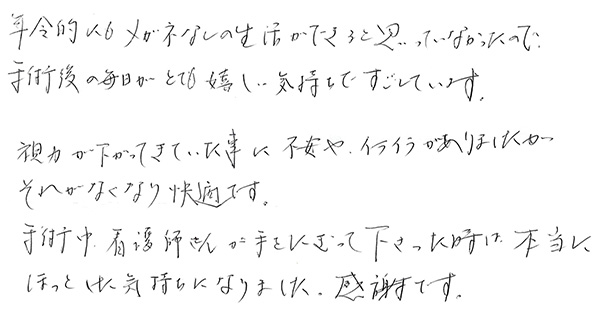 年令的にもメガネなしの生活ができると思っていなかったので、
手術後の毎日がとても嬉しい気持ちですごしています。
視力が下がってきていた事に不安や、イライラがありましたが
それがなくなり快適です。
手術中、看護師さんが手をにぎって下さった時は、本当に
ほっとした気持ちになりました。感謝です。